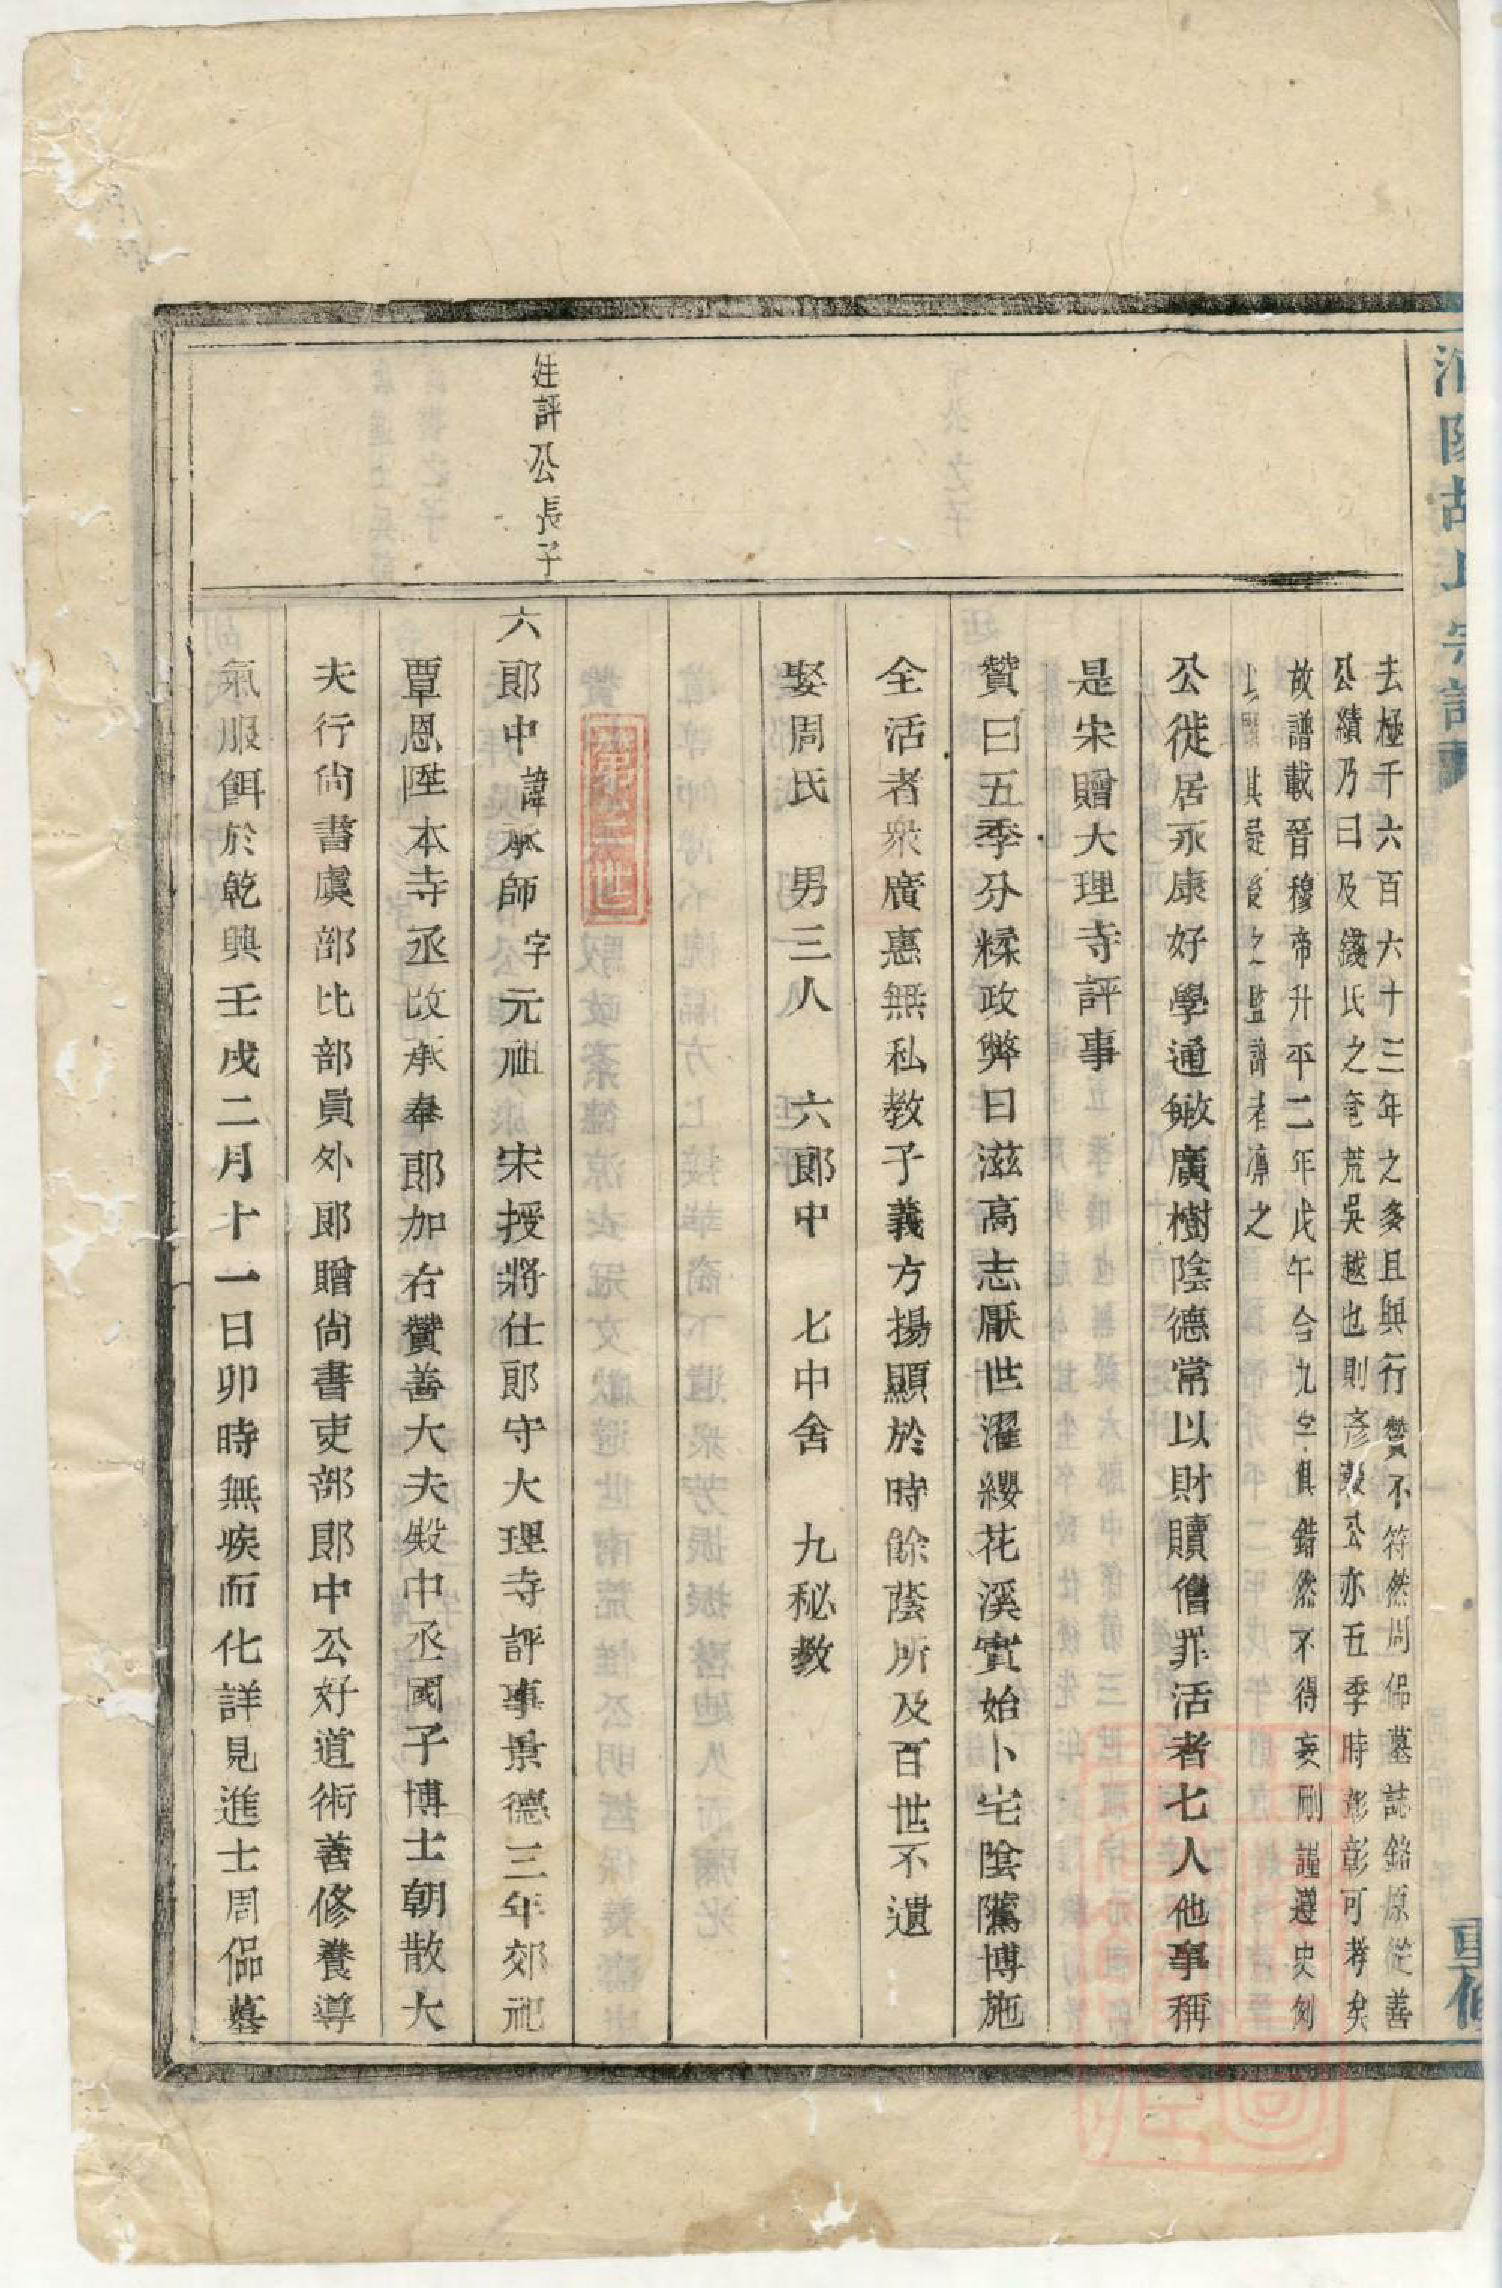 胡氏宗譜
重修
去極千六百六十三年之多且與行贊不符然周侣墓誌銘原從善
公績乃曰及錢氏之奄荒吳越也則彥公亦五季時彰彰可考矣
故譜載晉穆帝升平二年戊午合九字俱錯然不得妄刪謹遵史例
以其疑後之監譜者凛之
公徙居永康好學通敏廣樹陰德常以財贖僧罪活者七人他事稱
是宋贈大理寺評事
贊曰五季分糅政弊日滋高志厭世濯纓花溪實始卜宅陰隲博施
全活者衆廣惠無私教子義方揚顯於時餘蔭所及百世不遺
娶周氏 男三人 六郎中 七中舍 九秘教
第三世
廷評公長子
六郎中 諱承師 字元祖 宋授將仕郎守大理寺評事景德三年郊祀
覃恩陞本寺丞改承奉郎加右贊善大夫殿中丞國子博士朝散大
夫行尚書虞部比部員外郎贈尚書吏部郎中公好道術善修養導
氣服餌於乾興壬戌二月十一日卯時無疾而化詳見進士周侣墓